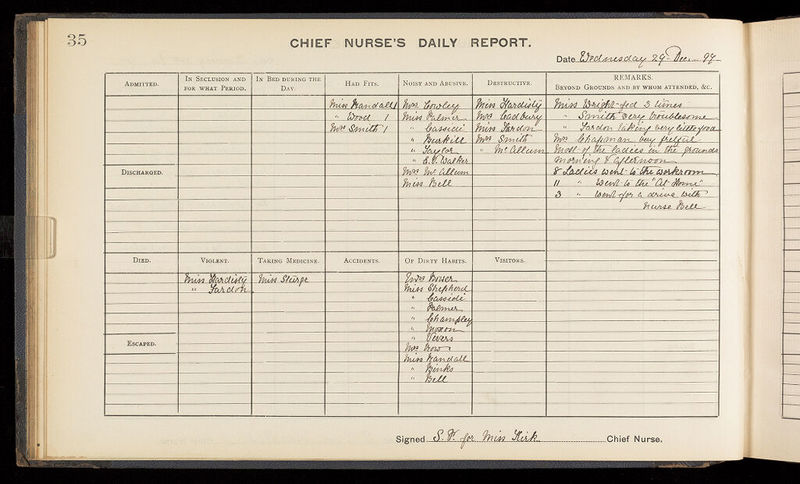 35
CHIEF NURSE'S DAILY REPORT.
Date Wednesday 29 Decr 97
ADMITTED.
DISCHARGED.
IN SECLUSION AND FOR WHAT PERIOD.
IN BED DURING THE DAY.
HAD FITS.
Miss Randall 1
" Wood 1
Mrs Smith 1
NOISY AND ABUSIVE.
Mrs Cowley
Miss Palmer
" Cassidi
" Burkill
" Taylor
" E. V. Walker
Mrs McCallum
Miss Bell
DESTRUCTIVE.
Miss Hardisty
Mrs Cadbury
Miss Fardon
Mrs Smith
" McCallum
REMARKS.
BEYOND GROUNDS AND BY WHOM ATTENDED, &C.
Miss Wright fed 3 times
" Smith very troublesome
" Fardon taking very little food
Mrs Chapman very fretful
Most of the ladies in the grounds
morning & afternoon
8 Ladies went to the workroom
11 " Went to the "At Home"
3 " Went for a drive with
Nurse Bell
DIED.
ESCAPED.
VIOLENT.
Miss Hardisty
" Fardon
TAKING MEDICINE.
Miss Sturge
ACCIDENTS.
OF DIRTY HABITS.
Mrs
Miss Shepherd
" Cassidi
" Palmer
" Champley
" Moxon
" Vevers
Mrs Row
Miss Randall
" Binks
" Bell
VISITORS.
Signed S. V. for Miss Kirk Chief Nurse.